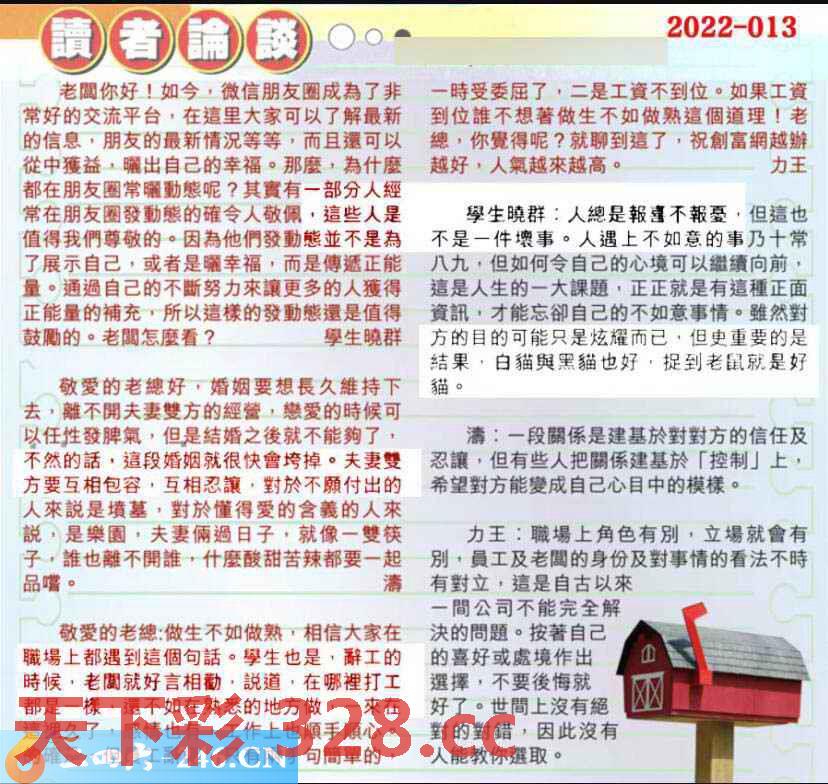 讀者論談
2022-013
老闆你好！如今，微信朋友圈成為了非
常好的交流平台，在這里大家可以了解最新
的信息，朋友的最新情況等等，而且還可以
從中獲益，曬出自己的幸福。那麼，為什麼
都在朋友圈常曬動態呢？其實有一部分人經
常在朋友圈發動態的確令人敬佩，這些人是
值得我們尊敬的。因為他們發動態並不是為
了展示自己，或者是曬幸福，而是傳遞正能
量。通過自己的不斷努力來讓更多的人獲得
正能量的補充，所以這樣的發動態還是值得
鼓勵的。老闆怎麼看？ 學生曉群
敬愛的老總好，婚姻要想長久維持下
去，離不開夫妻雙方的經營，戀愛的時候可
以任性發脾氣，但是結婚之後就不能夠了，
不然的話，這段婚姻就很快會垮掉。夫妻雙
方要互相包容，互相忍讓，對於不願付出的
人來説是墳墓，對於懂得愛的含義的人來
説，是樂園，夫妻倆過日子，就像一雙筷
子，誰也離不開誰，什麼酸甜苦辣都要一起
品嚐。 濤
敬愛的老總:做生不如做熟，相信大家在
職場上都遇到這個句話。學生也是，辭工的
時候，老闆就好言相勸，説道，在哪裡打工
都是一樣，還不如在熟悉的地方做，來在
這裡久了，感情也有，工作上也順手順心。
句簡單的，
一時受委屈了，二是工資不到位。如果工資
到位誰不想著做生不如做熟這個道理！老
總，你覺得呢？就聊到這了，祝創富網越辦
越好，人氣越來越高。 力王
學生曉群：人總是報喜不報憂，但這也
不是一件壞事。人遇上不如意的事乃十常
八九，但如何令自己的心境可以繼續向前，
這是人生的一大課題，正正就是有這種正面
資訊，才能忘卻自己的不如意事情。雖然對
方的目的可能只是炫耀而已，但史重要的是
結果，白貓與黑貓也好，捉到老鼠就是好
貓。
濤：一段關係是建基於對對方的信任及
忍讓，但有些人把關係建基於「控制」上，
希望對方能變成自己心目中的模樣。
力王：職場上角色有別，立場就會有
別，員工及老闆的身份及對事情的看法不時
有對立，這是自古以來
一間公司不能完全解
決的問題。按著自己
的喜好或處境作出
選擇，不要後悔就
好了。世間上沒有絕
對的對錯，因此沒有
人能教你選取。
天下彩.328.cc
246.CN